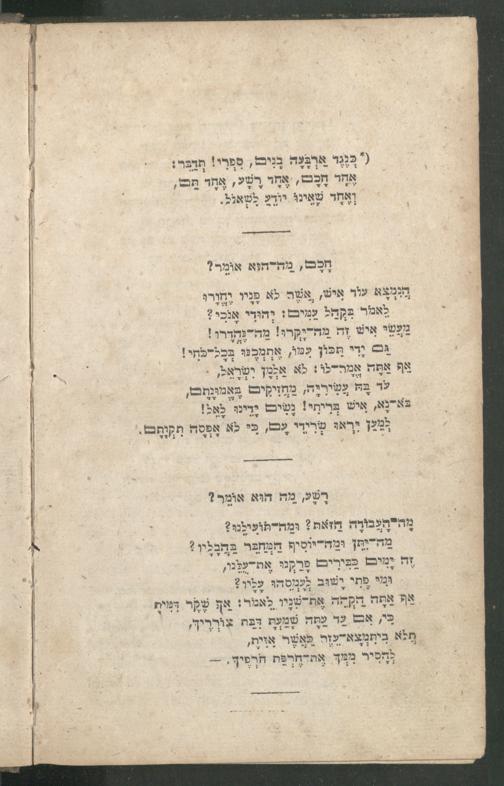 *) כְּנֶגֶד אַרְבָּעָה בָנִים, סִפְרִי! תְּדַבֵּר:
אֶחָד חָכָם, אֶחָד רָשָׁע, אֶחָד תַּם,
וְאֶחָד שֶׁאֵינוֹ יוֹדֵעַ לִשְׁאוֹל.
חָכָם, מַה־הוּא אוֹמֵר?
הֲנִמְצָא עוֹד אִישׁ, אֲשֶׁר לֹא פָנָיו יֶחֱוָרוּ
לֵאמֹר בִּקְהַל עַמִּים: יְהוּדִי אָנֹכִי?
מַעֲשֵׂי אִישׁ זֶה מַה־יָּקְרוּ! מַה־נֶּהְדָּרוּ!
גַּם יָדִי תִּכּוֹן עִמּוֹ, אֶתְמְכֶנּוּ בְּכָל־כֹּחִי!
אַף אַתָּה אֱמָר־לוֹ: לֹא אַלְמָן יִשְׂרָאֵל,
עֹד בָּהּ עֲשִׂירִיָּה, מַחֲזִיקִים בֶּאֱמוּנָתָם,
בֹּא־נָא, אִישׁ בְּרִיתִי! נָשִׂים יָדֵינוּ לָאֵל!
לְמַעַן יִרְאוּ שְׂרִידֵי עָם, כִּי לֹא אָפְסָה תִקְוָתָם.
רָשָׁע, מַה הוּא אוֹמֵר?
מָה־הָעֲבוֹדָה הַזֹּאת? וּמַה־תּוֹעִילֵנוּ?
מַה־יִּתֵּן וּמַה־יּוֹסִיף הַמְּחַבֵּר בַּהֲבָלָיו?
זֶה יָמִים כַּבִּירִים פָּרַקְנוּ אֶת־עֻלֵּנוּ,
וּמִי פֶתִי יָשׁוּב לְעָמְסֵהוּ עָלָיו?
אַף אַתָּה הַקְהֵה אֶת־שִׁנָּיו לֵאמֹר: אַךְ שֶׁקֶר דִּמִּיתָ
כִּי, אִם עַד עַתָּה שָׁמַעְתָּ דִּבַּת צוֹרְרֶיךָ,
תְלֹא בִּי־תִּמְצָא־עֵזֶר כַּאֲשֶׁר אִוִּיתָ,
לְהָסִיר מִמְּךָ אֶת־חֶרְפַּת חֹרְפֶיךָ. —